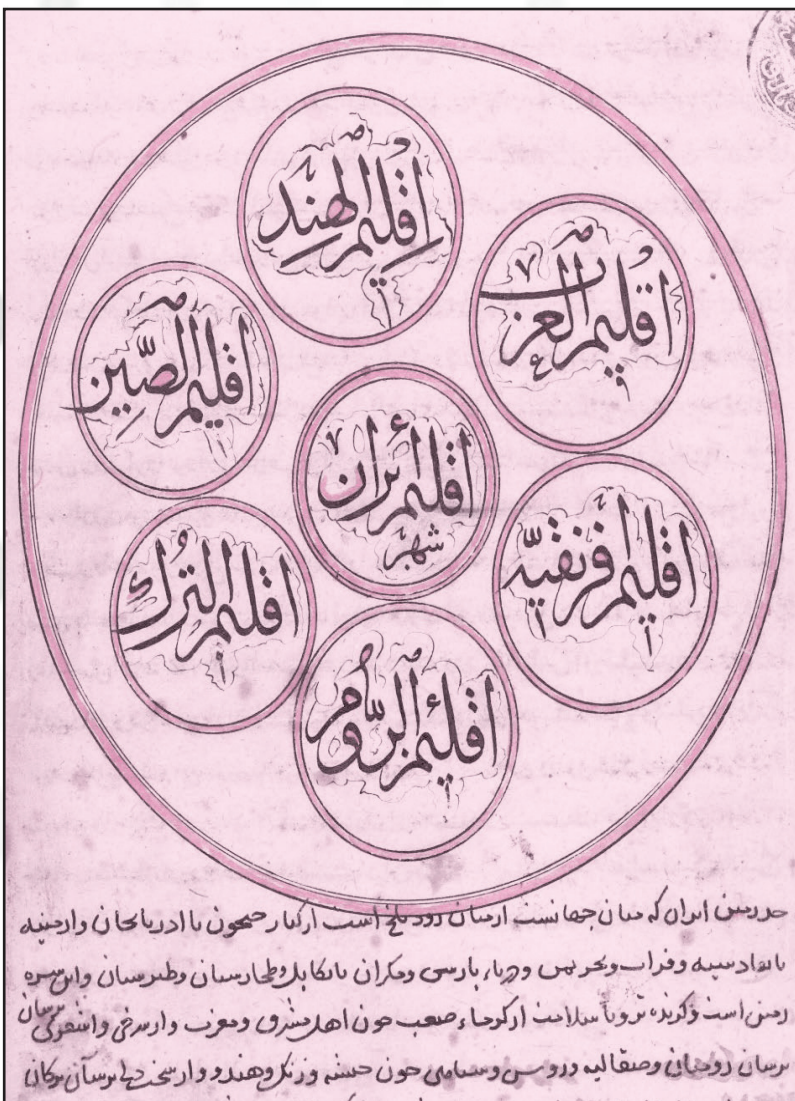 اقليم الهند
اقليم العرب
اقليم الصين
اقليم ايران
شهر
اقليم افريقيه
اقليم الترك
اقليم الروم
حد زمين ايران كه ميان جهانست از ميان رود بلخ است از كنار جيحون تا اذربايجان وارمنيه
تا بقادسيه وفرات وبحر يمن ودرياء پارسى ومكران تا بكابل وطخارستان وطبرستان واين سره
زمين است وگزيده تر وبا سلامت از گرماء صعب چون اهل مشرق ومغرب واز سرخى واشقرى برسان
برسان روميان وصقالبه وروس وسياهى چون حبشه وزنگ وهندو واز سخت برسان تركان